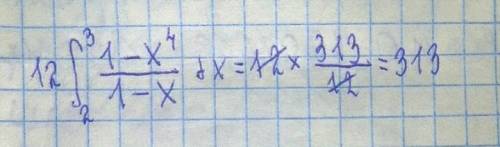 12 ∫₂³ (1-x⁴)/(1-x) dx = 12 × 313/12 = 313